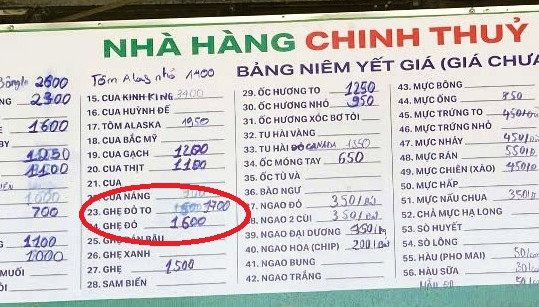 NHÀ HÀNG CHINH THUỶ
BẢNG NIÊM YẾT GIÁ (GIÁ CHƯA
2600
Tôm Alas nhỏ 1400
2300
1600
1100
700
1100
1000
MUỐI
15. CUA KINH KING 3400
16. CUA HUỲNH ĐẾ
17. TÔM ALASKA 1950
18. CUA BẮC MỸ
19. CUA GẠCH 1200
20. CUA THỊT 1100
21. CUA
22. CUA NÀNG
23. GHẸ ĐỎ TO 1700
24. GHẸ ĐỎ 1600
25. GHẸ
26. GHẸ XANH
27. GHẸ 1500
28. SAM BIỂN
29. ỐC HƯƠNG TO 1250
30. ỐC HƯƠNG NHỎ 950
31. ỐC HƯƠNG XÓC BƠ TỎI
32. TU HÀI VÀNG
33. TU HÀI ĐỎ CANADA 1350
34. ỐC MÓNG TAY 650
35. ỐC TÙ VÀ
36. BÀO NGƯ
37. NGAO ĐỎ 350/
38. NGAO 2 CÙI 350/
39. NGAO ĐẠI DƯƠNG 450/
40. NGAO HOA (CHIP) 200/
41. NGAO BUNG
42. NGAO TRẮNG
43. MỰC BÔNG
44. MỰC ỐNG 850
45. MỰC TRỨNG TO 450/
46. MỰC TRỨNG NHỎ
47. MỰC NHÁY 450/
48. MỰC RÁN 550/
49. MỰC CHIÊN (XÀO) 450/
50. MỰC HẤP
51. MỰC NẤU CHUA 350/
52. CHẢ MỰC HẠ LONG
53. SÒ HUYẾT
54. SÒ LÔNG
55. HÀU (PHO MAI) 50/
56. HÀU SỮA 30/
50/